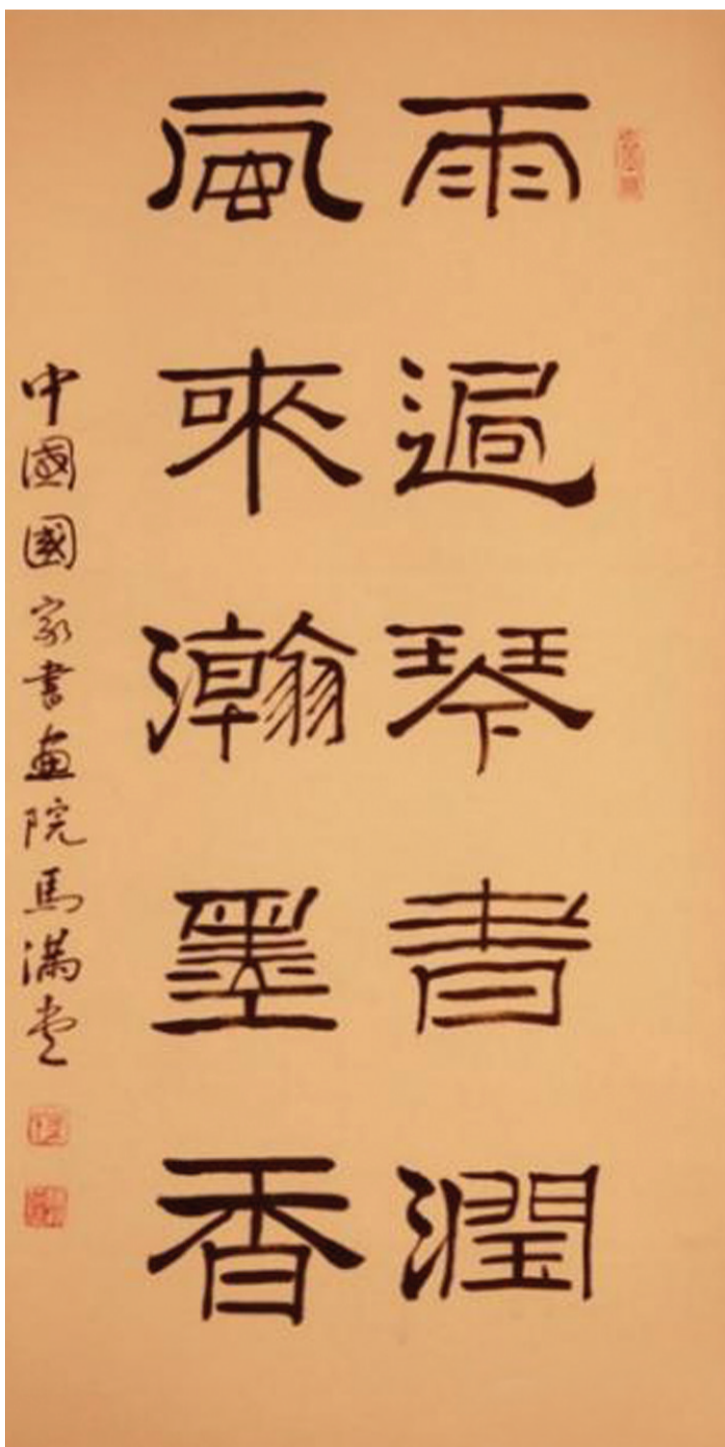 雨過琴書潤
風來瀚墨香
中國國家書畫院馬滿堂